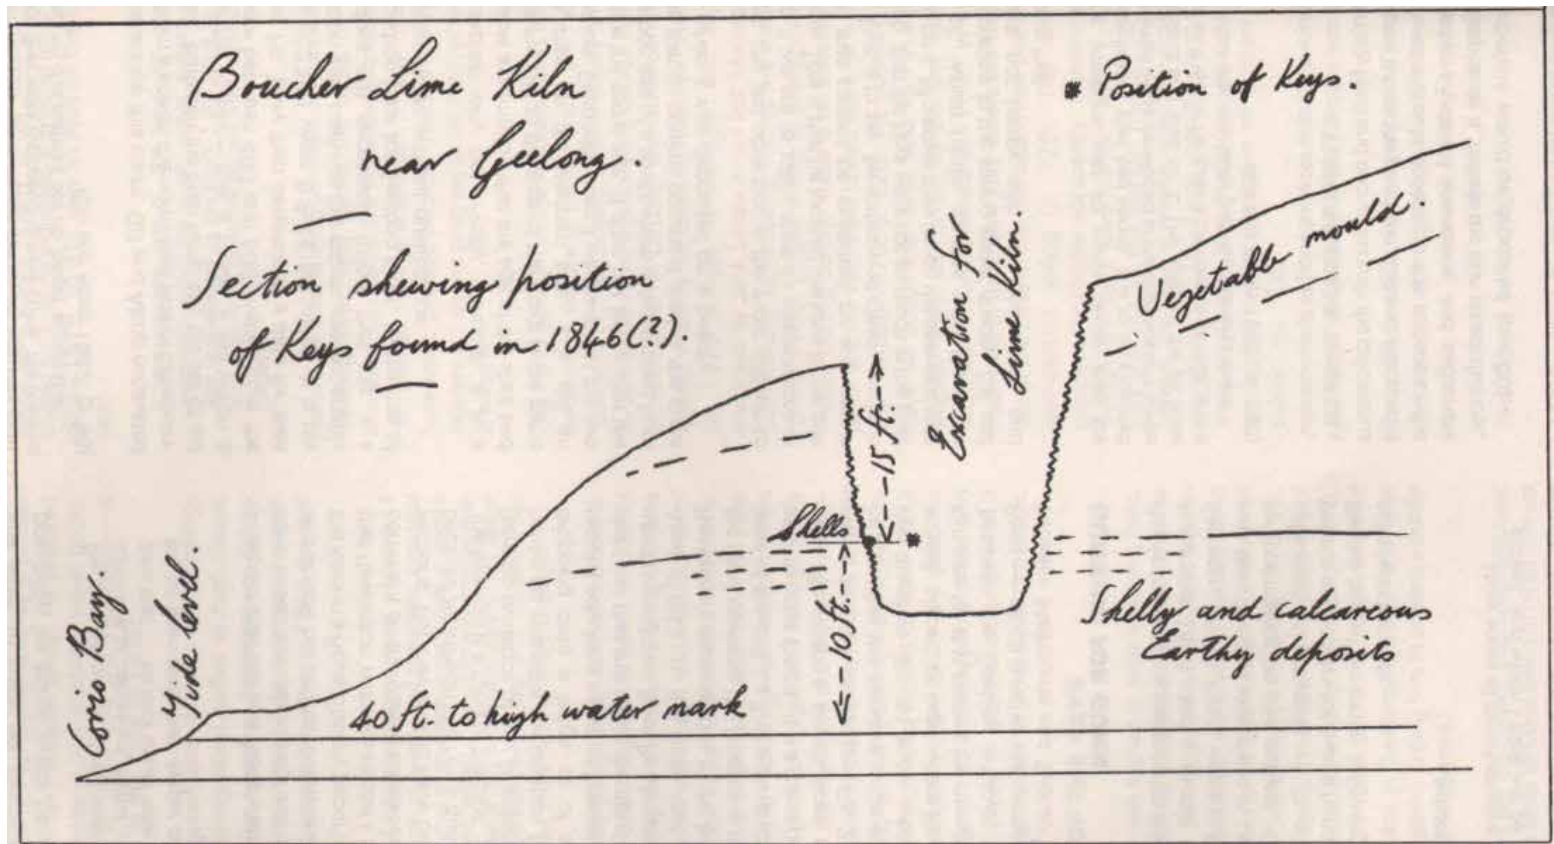 Boucher Lime Kiln
near Geelong.
Section shewing position
of Keys found in 1846(?).
* Position of Keys.
Excavation for
Lime Kiln.
Vegetable mould.
15 ft.
Shells
*
10 ft.
Shelly and calcareous
Earthy deposits
Corio Bay.
Tide level.
40 ft. to high water mark